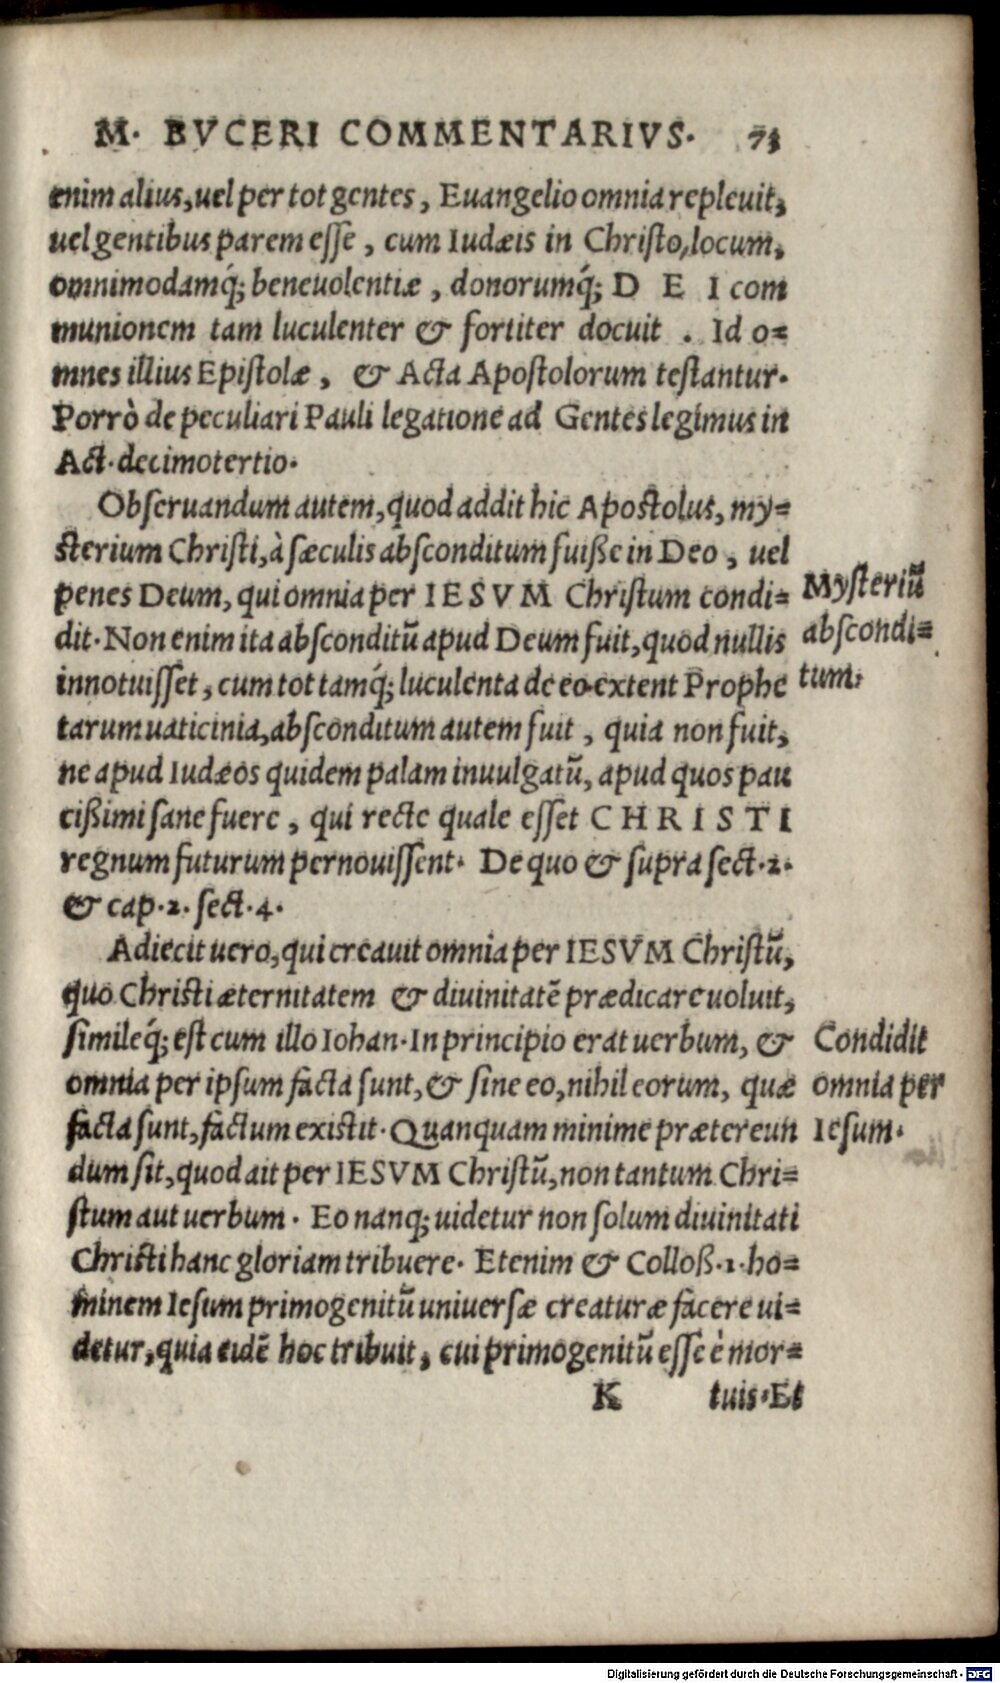 M. BVCERI COMMENTARIVS. 73
enim alius, uel per tot gentes, Euangelio omnia repleuit,
uel gentibus parem esse, cum Iudæis in Christo, locum,
omnimodamq́; beneuolentiæ, donorumq́; D E I com
munionem tam luculenter & fortiter docuit. Id o=
mnes illius Epistolæ, & Acta Apostolorum testantur.
Porrò de peculiari Pauli legatione ad Gentes legimus in
Act. decimotertio.
Obseruandum autem, quod addit hic Apostolus, my=
sterium Christi, à sæculis absconditum fuiße in Deo, uel
penes Deum, qui omnia per IESVM Christum condi=
dit. Non enim ita absconditū apud Deum fuit, quod nullis
innotuisset, cum tot tamq́; luculenta de eo extent Prophe
tarum uaticinia, absconditum autem fuit, quia non fuit,
ne apud Iudæos quidem palam inuulgatū, apud quos pau
cißimi sane fuere, qui recte quale esset CHRISTI
regnum futurum pernouissent. De quo & supra sect.2.
& cap.2. sect.4.
Mysteriū
abscondi=
tum.
Adiecit uero, qui creauit omnia per IESVM Christū,
quo Christi æternitatem & diuinitatē prædicare uoluit,
simileq́; est cum illo Iohan. In principio erat uerbum, &
omnia per ipsum facta sunt, & sine eo, nihil eorum, quæ
facta sunt, factum existit. Quanquam minime prætereun
dum sit, quod ait per IESVM Christū, non tantum Chri=
stum aut uerbum. Eo nanq; uidetur non solum diuinitati
Christi hanc gloriam tribuere. Etenim & Colloß.1. ho=
minem Iesum primogenitū uniuersæ creaturæ facere ui=
detur, quia eidē hoc tribuit, cui primogenitū esse è mor=
Condidit
omnia per
Iesum.
K tuis. Et
Digitalisierung gefördert durch die Deutsche Forschungsgemeinschaft - DFG